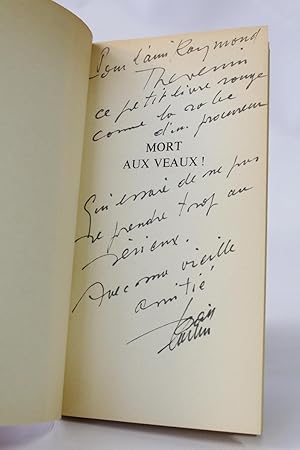 Pour l'ami Raymond
Thevenin
ce petit livre rouge
comme la robe
d'un procureur
MORT
AUX VEAUX !
Qui essaie de ne pas
se prendre trop au
sérieux.
Avec ma vieille
amitié